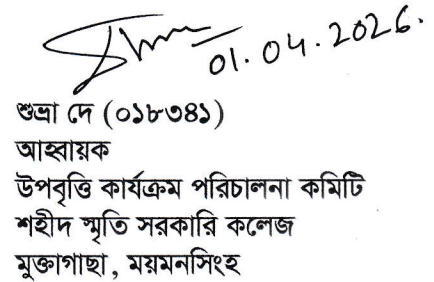 01.04.2026.
শুভ্রা দে (০১৮৩৪১)
আহ্বায়ক
উপবৃত্তি কার্যক্রম পরিচালনা কমিটি
শহীদ স্মৃতি সরকারি কলেজ
মুক্তাগাছা, ময়মনসিংহ